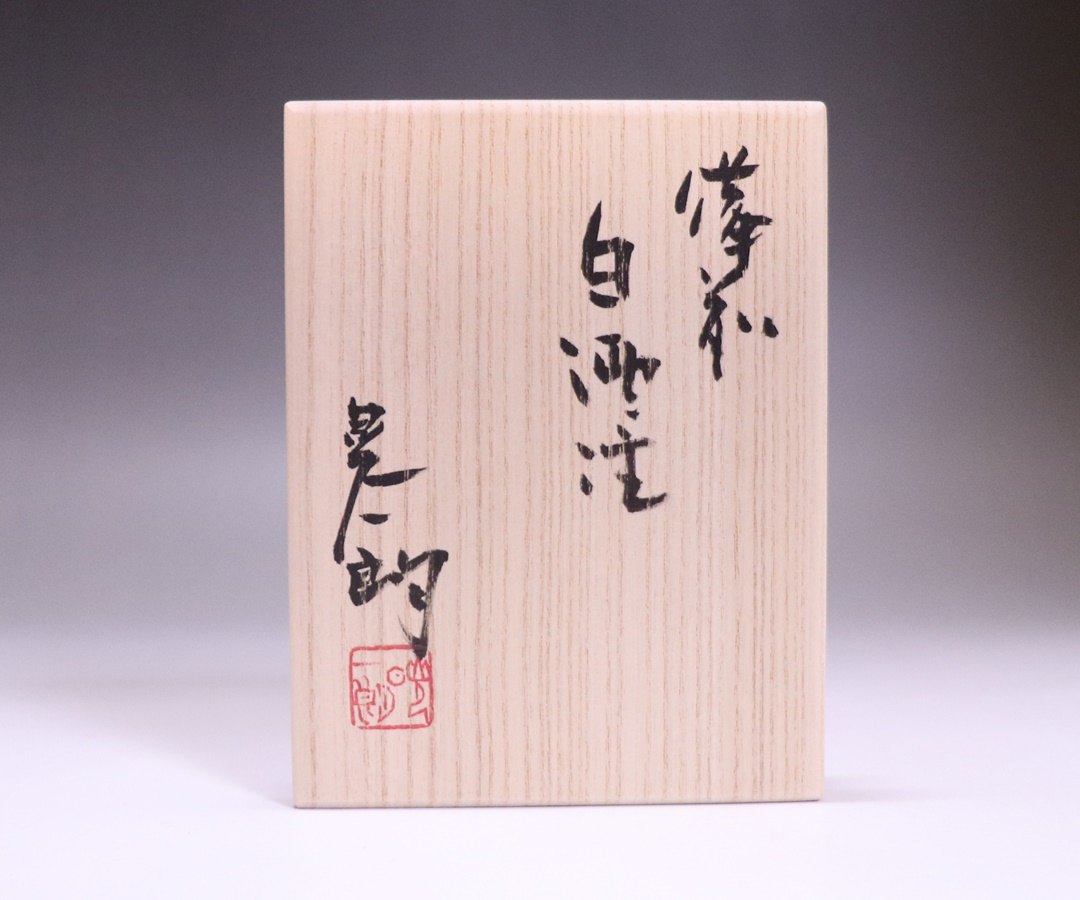 備前
白酒注
晃一朗